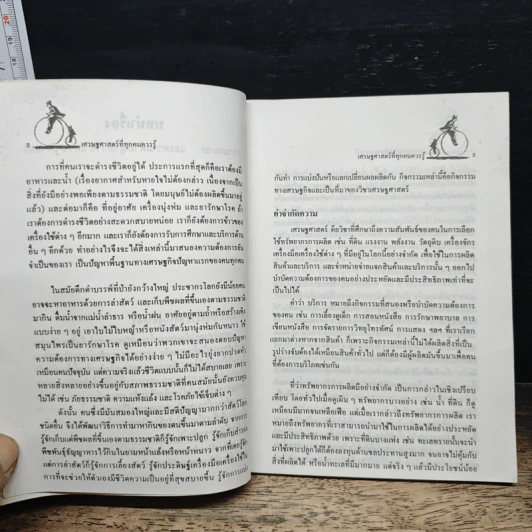 2 เศรษฐศาสตร์ที่ทุกคนควรรู้
การที่คนเราจะดำรงชีวิตอยู่ได้ ประการแรกที่สุดก็คือเราต้องมี
อาหารและน้ำ (เรื่องอากาศสำหรับหายใจไม่ต้องกล่าว เนื่องจากเป็น
สิ่งที่ยังมีอย่างพอเพียงตามธรรมชาติ โดยมนุษย์ไม่ต้องผลิตขึ้นมาอยู่
แล้ว) และต่อมาก็คือ ที่อยู่อาศัย เครื่องนุ่งห่ม และยารักษาโรค ถ้า
เราต้องการดำรงชีวิตอย่างสะดวกสบายหน่อย เราก็ยังต้องการข้าวของ
เครื่องใช้ต่าง ๆ อีกมาก และเราก็ยังต้องการรับการศึกษาและบริการด้าน
อื่น ๆ อีกด้วย ทำอย่างไรจึงจะได้สิ่งเหล่านี้มาสนองความต้องการอัน
จำเป็นของเรา เป็นปัญหาพื้นฐานทางเศรษฐกิจปัญหาแรกของคนทุกคน
ในสมัยดึกดำบรรพ์ที่ป่ายังกว้างใหญ่ ประชากรโลกยังมีน้อยคน
อาจจะหาอาหารด้วยการล่าสัตว์ และเก็บพืชผลที่ขึ้นเองตามธรรมชาติ
มากิน ดื่มน้ำจากแม่น้ำลำธาร หรือน้ำฝน อาศัยอยู่ตามถ้ำหรือสร้างเพิง
แบบง่าย ๆ อยู่ เอาใบไม้ใบหญ้าหรือหนังสัตว์มานุ่งห่มกันหนาว ใช้
สมุนไพรเป็นยารักษาโรค ดูเหมือนว่าพวกเขาจะสนองตอบปัญหา
ความต้องการทางเศรษฐกิจได้อย่างง่าย ๆ ไม่มีอะไรยุ่งยากปวดหัว
เหมือนคนปัจจุบัน แต่ความจริงแล้วชีวิตแบบนั้นก็ไม่ได้สบายเลย เพราะ
หลายสิ่งหลายอย่างขึ้นอยู่กับสภาพธรรมชาติที่คนสมัยนั้นยังควบคุม
ไม่ได้ เช่น ภัยธรรมชาติ ความแห้งแล้ง และ โรคภัยไข้เจ็บต่าง ๆ
ดังนั้น คนซึ่งมีมันสมองใหญ่และมีสติปัญญามากกว่าสัตว์โลก
ชนิดอื่น จึงได้พัฒนาวิธีการทำมาหากินของตนขึ้นมาตามลำดับ จากการ
รู้จักเก็บแต่พืชผลที่ขึ้นเองตามธรรมชาติก็รู้จักเพาะปลูก รู้จักเก็บสำรอง
พืชพันธุ์ธัญญาหารไว้กินในยามหน้าแล้งหรือหน้าหนาว จากที่เคยรู้จัก
แต่การล่าสัตว์ก็รู้จักการเลี้ยงสัตว์ รู้จักประดิษฐ์เครื่องมือเครื่องใช้ใน
การที่จะช่วยให้ตัวเองมีชีวิตความเป็นอยู่ที่สุขสบายขึ้น รู้จักการแบ่ง
เศรษฐศาสตร์ที่ทุกคนควรรู้ 3
กันทำ การแบ่งปันหรือแลกเปลี่ยนผลผลิตกัน กิจกรรมเหล่านี้คือกิจกรรม
ทางเศรษฐกิจและเป็นที่มาของวิชาเศรษฐศาสตร์
คำจำกัดความ
เศรษฐศาสตร์ คือวิชาที่ศึกษาถึงความสัมพันธ์ของคนในการเลือก
ใช้ทรัพยากรการผลิต เช่น ที่ดิน แรงงาน พลังงาน วัตถุดิบ เครื่องจักร
เครื่องมือเครื่องใช้ต่าง ๆ ที่มีอยู่ในโลกนี้อย่างจำกัด เพื่อใช้ในการผลิต
สินค้าและบริการ และจำหน่ายจ่ายแจกสินค้าและบริการนั้น ๆ ออกไป
บำบัดความต้องการของคนอย่างประหยัดและมีประสิทธิภาพเท่าที่จะ
เป็นได้
คำว่า บริการ หมายถึงกิจกรรมที่สนองหรือบำบัดความต้องการ
ของคน เช่น การเลี้ยงดูเด็ก การสอนหนังสือ การรักษาพยาบาล การ
เขียนหนังสือ การจัดรายการวิทยุโทรทัศน์ การแสดง ฯลฯ ที่เราเรียก
แยกมาต่างหากจากสินค้า ก็เพราะกิจกรรมเหล่านี้ไม่ได้ผลิตสิ่งที่เป็น
รูปร่างจับต้องได้เหมือนสินค้าทั่วไป แต่ก็ต้องมีผู้ผลิตมันขึ้นมาเพื่อคน
ที่ต้องการบริโภคเช่นกัน
ที่ว่าทรัพยากรการผลิตมีอย่างจำกัด เป็นการกล่าวในเชิงเปรียบ
เทียบ โดยทั่วไปเมื่อดูเผิน ๆ ทรัพยากรบางอย่าง เช่น น้ำ ที่ดิน ก็ดู
เหมือนมีมากจนเหลือเฟือ แต่เมื่อเรากล่าวถึงทรัพยากรการผลิต เรา
หมายถึงทรัพยากรที่เราสามารถนำมาใช้ในการผลิตได้อย่างประหยัด
และมีประสิทธิภาพด้วย เพราะที่ดินบางแห่ง เช่น ทะเลทรายนั้นจะนำ
มาใช้เพาะปลูกได้ก็ต้องลงทุนด้านชลประทานสูงมาก จนอาจไม่คุ้มกับ
สิ่งที่ผลิตได้ หรือน้ำทะเลที่มีมากมาย แต่จริง ๆ แล้วมีประโยชน์น้อย